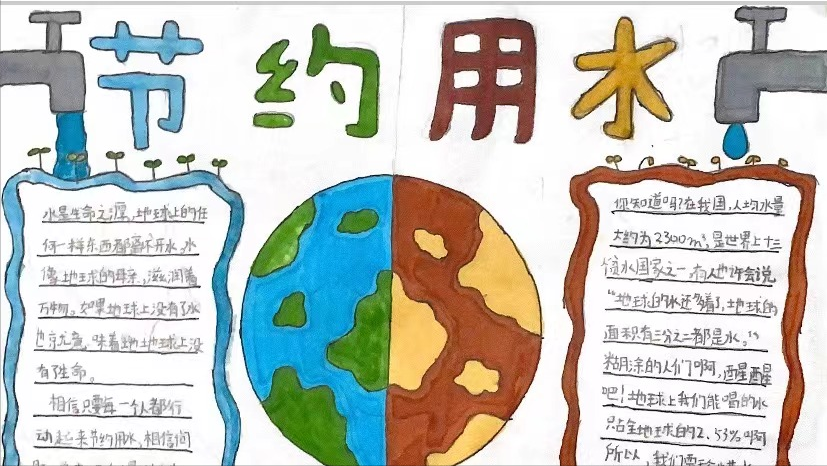 节约用水
水是生命之源,地球上的任
何一样东西都离不开水。水
像地球的母亲,滋润着
万物。如果地球上没有了水
也就意味着地球上没
有了生命。
相信只要每一个人都行
动起来节约用水,相信
你知道吗?在我国,人均水量
大约为2300m³,是世界上十三
贫水国家之一。有人也许会说
“地球的水还多着了,地球的
面积有三分之二都是水。”
糊涂的人们啊,醒醒
吧!地球上我们能喝的水
只占全地球的2.53%啊
所以,我们要